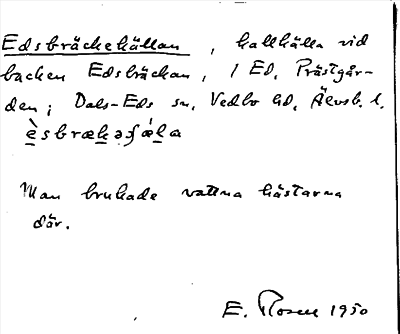 Edsbräckekällan, kallkälla vid
backen Edsbräckan, 1 Ed, Prästgår-
den; Dals-Eds sn, Vedbo hd, Älvsb. l.
è̱sbræḵəʃǽ̱ḻa
Man brukade vattna hästarna
där.
E. Rosen 1950